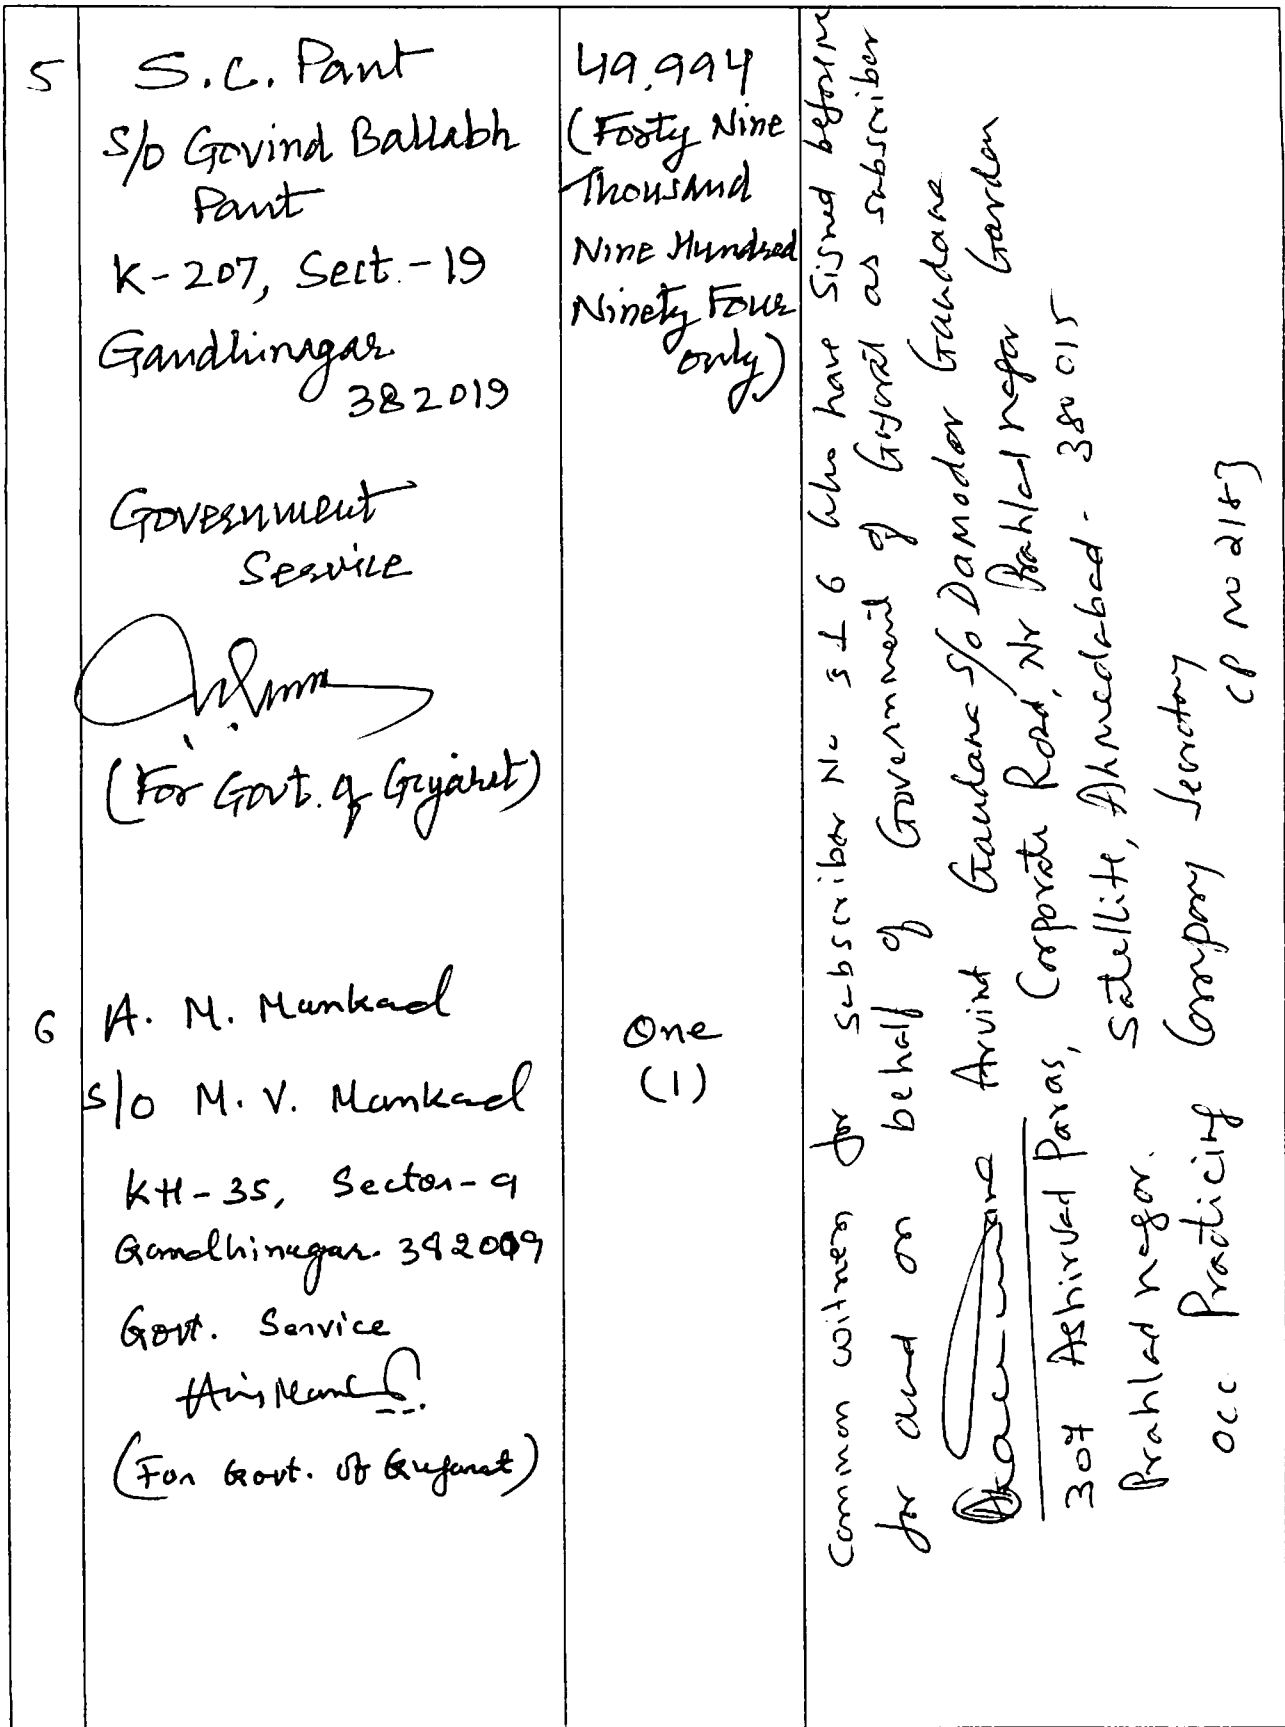 5
S.C. Pant
S/o Govind Ballabh
Pant
K-207, Sect.-19
Gandhinagar
382019
Government
Service
(For Govt. of Gujarat)
49,994
(Forty Nine
Thousand
Nine Hundred
Ninety Four
only)
6
A. M. Mankad
S/o M. V. Mankad
KH-35, Sector-9
Gandhinagar. 382009
Govt. Service
(For Govt. of Gujarat)
One
(1)
Common witness for subscriber No 5 & 6 who have signed before me
for and on behalf of Government of Gujarat as subscriber
Arvind Gaudana S/o Damodar Gaudana
307 Ashirvad Paras, Corporate Road, Nr Prahladnagar Garden
Prahladnagar. Satellite, Ahmedabad - 380 015
Occ Practicing Company Secretary
CP no 2183